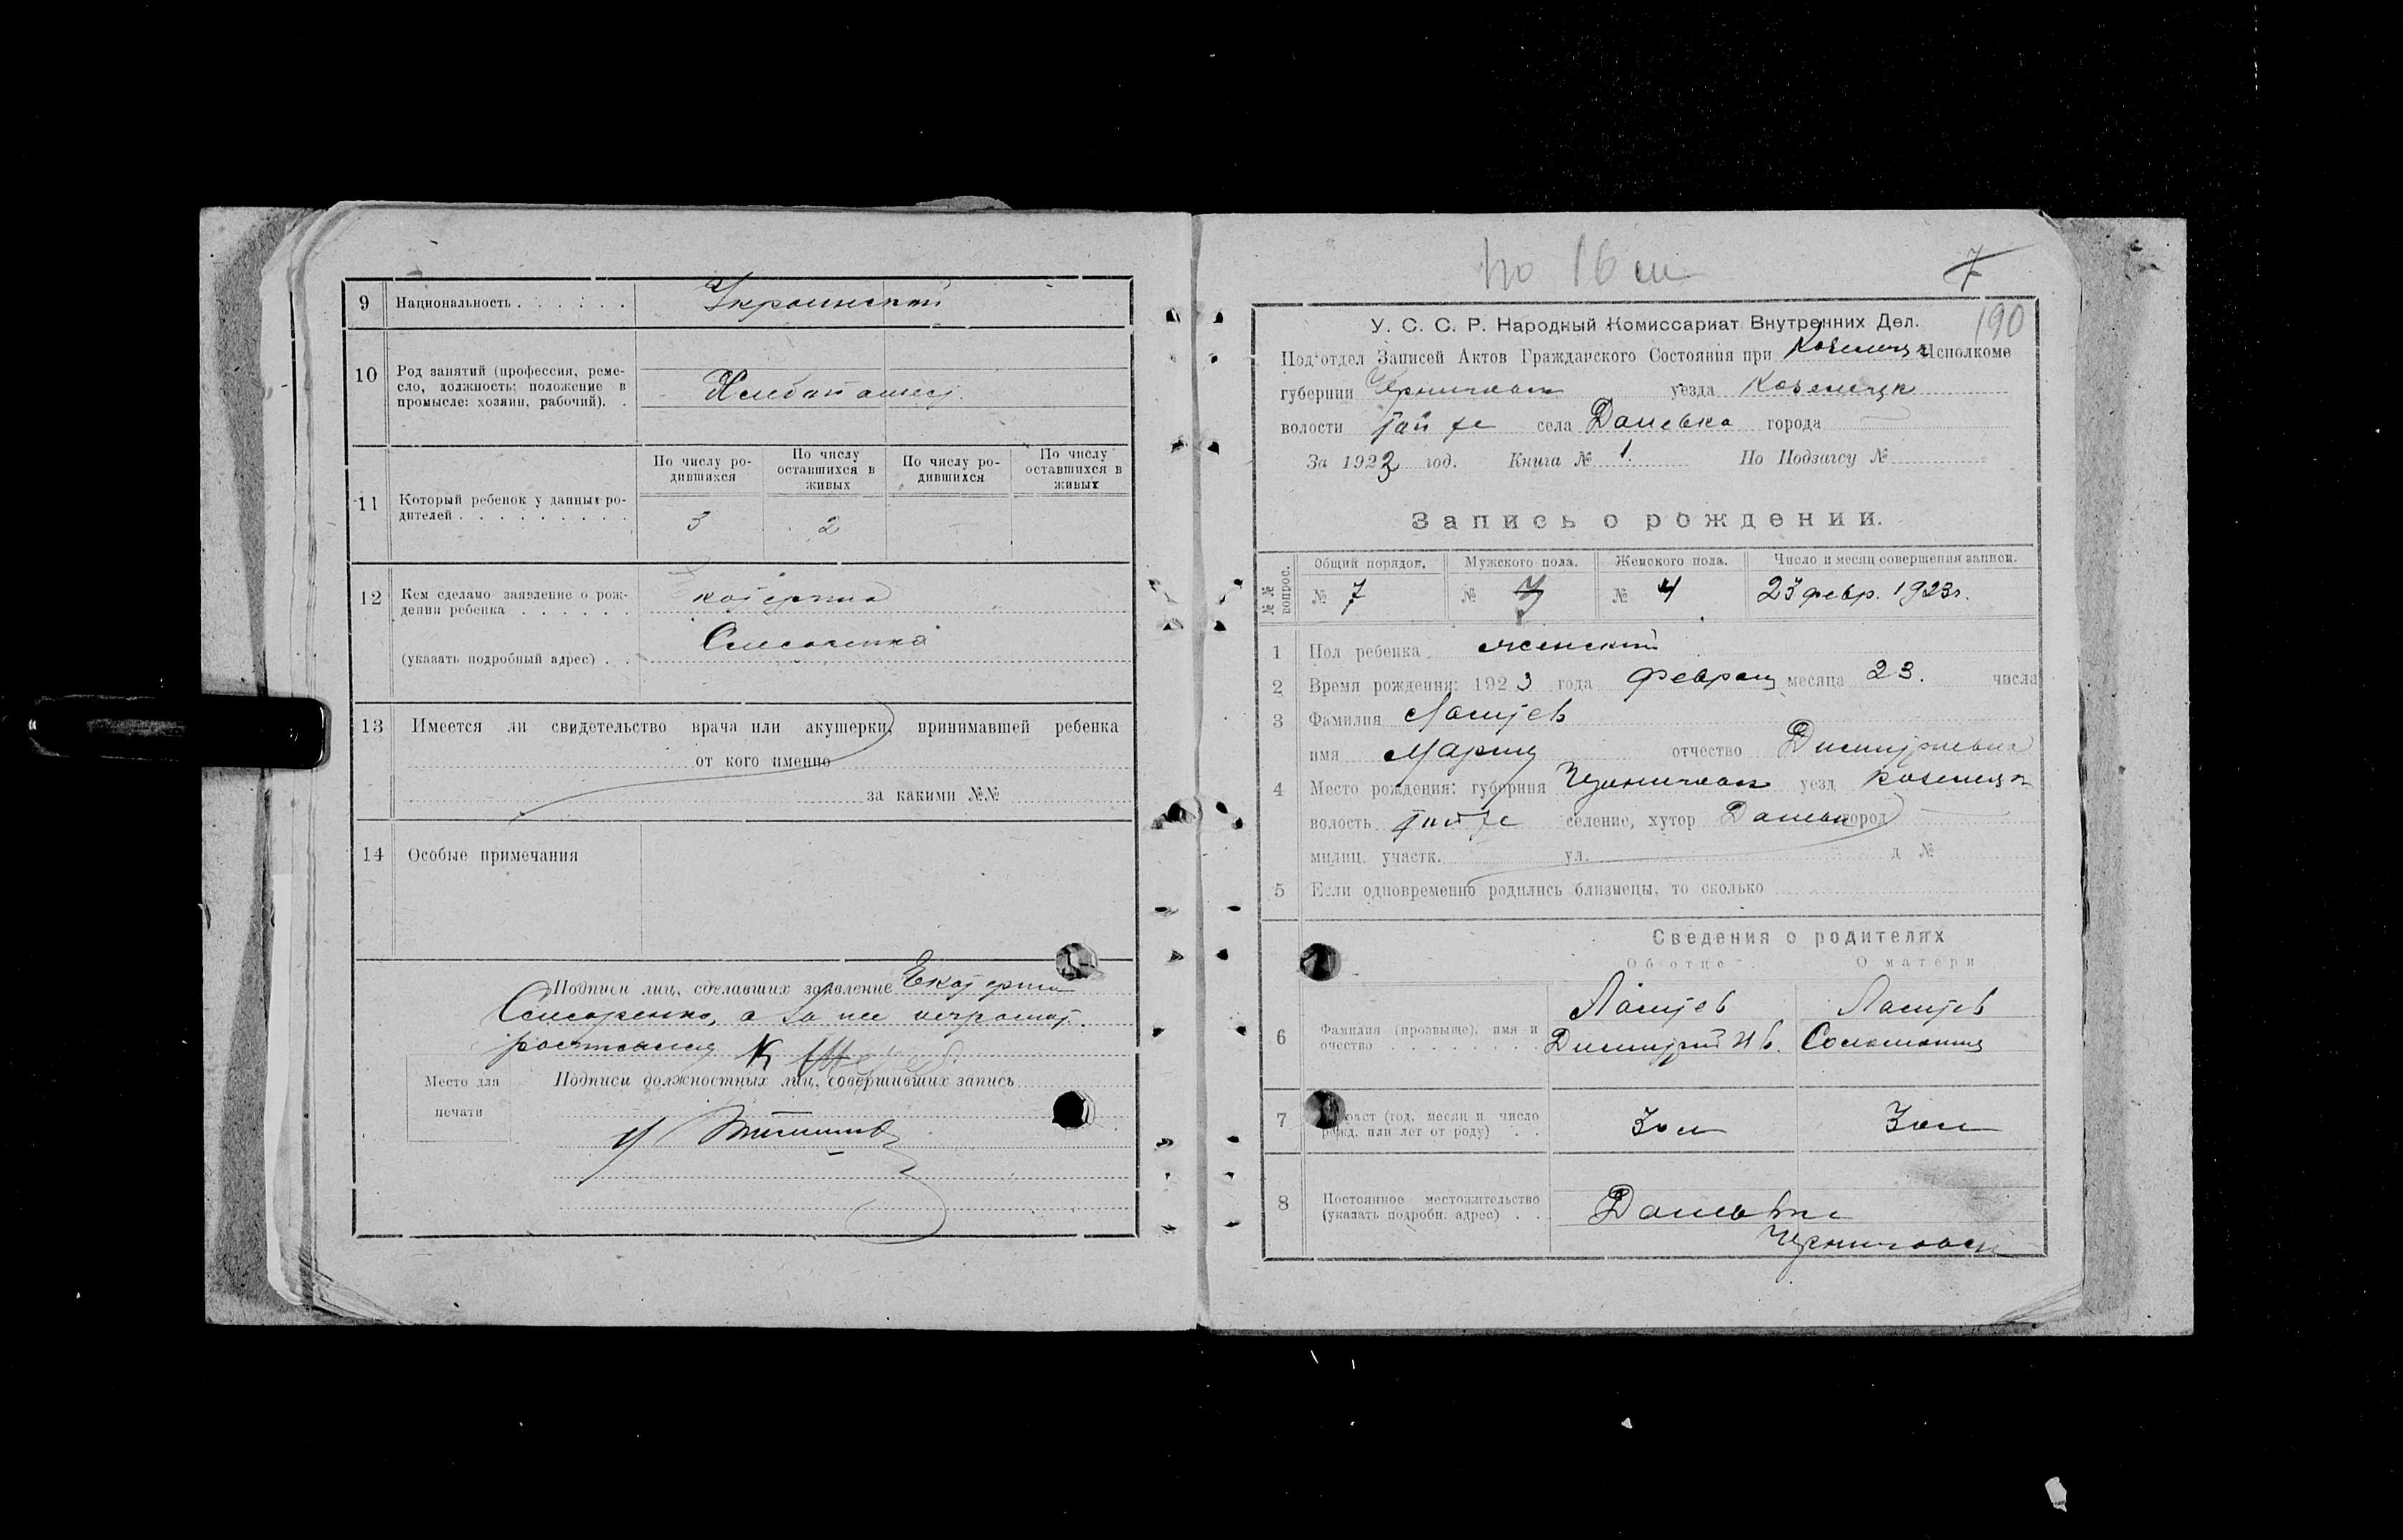 9 Национальность . . . . . . Украинской
10 Род занятий (профессия, реме-
сло, должность; положение в
промысле: хозяин, рабочий). .
Хлебопашец.
По числу ро-
дившихся
По числу
оставшихся в
живых
По числу ро-
дившихся
По числу
оставшихся в
живых
11 Который ребенок у данных ро-
дителей . . . . . . . . . .
3 2
12 Кем сделано заявление о рож-
дении ребенка . . . . . .
(указать подробный адрес) . .
13 Имеется ли свидетельство врача или акушерки, принимавшей ребенка
от кого именно
за какими №№
14 Особые примечания
Подписи лиц, сделавших заявление Екатерина
а за нее неграмот.
К
Место для
печати
Подписи должностных лиц, совершивших запись
по 16 ш
7
190
У. С. С. Р. Народный Комиссариат Внутренних Дел.
Под'отдел Записей Актов Гражданского Состояния при Козелецк Исполкоме
губернии Черниговск уезда Козелецк
волости села Даневка города
За 1923 год. Книга № 1. По Подзагсу №
Запись о рождении.
№№ вопрос.
Общий порядок. Мужского пола. Женского пола. Число и месяц совершения записи.
№ 7 № 7 № 4 23 февр. 1923г.
1 Пол ребенка женский
2 Время рождения: 1923 года Февраля месяца 23. числа
3 Фамилия
имя Мария отчество Димитриевна
4 Место рождения: губерния Черниговск уезд Козелецк
волость селение, хутор Даневка город
милиц. участк. ул. д №
5 Если одновременно родились близнецы, то сколько
Сведения о родителях
Об отце О матери
6 Фамилия (прозвище), имя и
очество
Димитрий Ив. Соломония
7 Возраст (год, месяц и число
рожд. или лет от роду) . .
30 л 30 л
8 Постоянное местожительство
(указать подробн. адрес) . .
Даневка
Черниговск